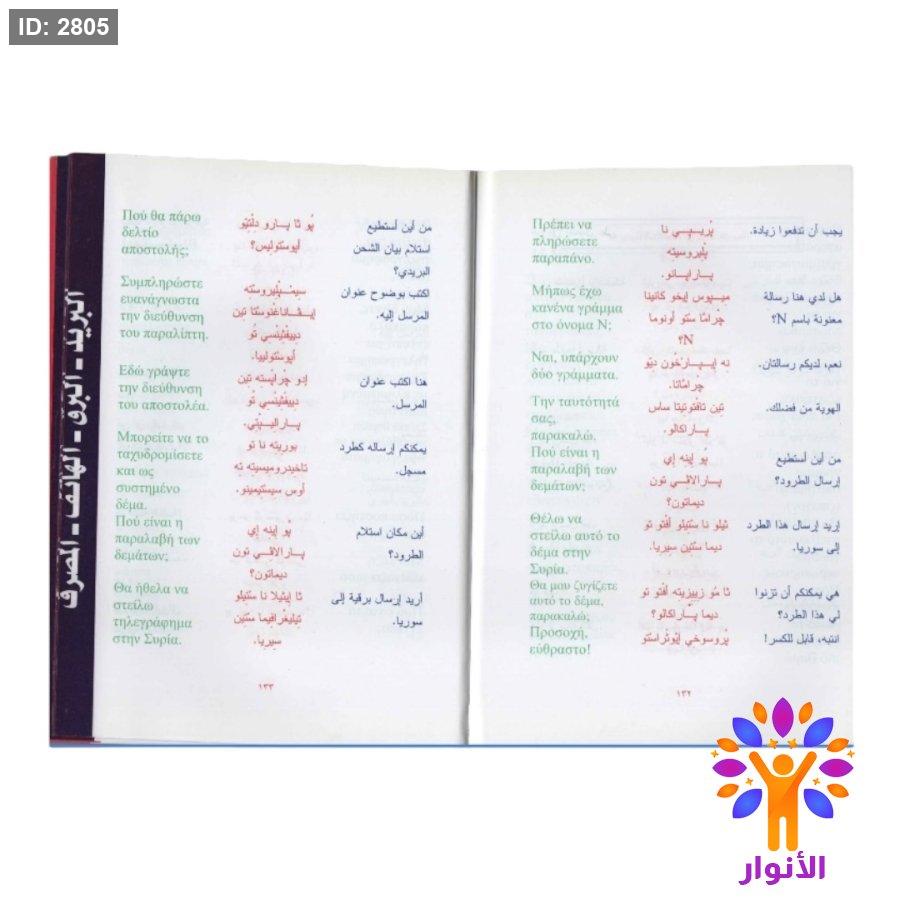 ID: 2805
يجب أن تدفعوا زيادة.
پْريـپـي نا
پْليروسيته
پـاراپـانو.
Πρέπει να
πληρώσετε
παραπάνο.
هل لدي هنا رسالة
معنونة باسم N؟
ميـپوس إيخو كانينا
غْرامّا ستو أونوما
N؟
Μήπως έχω
κανένα γράμμα
στο όνομα Ν;
نعم، لديكم رسالتان.
نه إيـپـارْخُون ديّو
غْرامّاتا.
Ναι, υπάρχουν
δύο γράμματα.
الهوية من فضلك.
تين تافتوتيتا ساس
پـاراكالو.
Την ταυτότητά
σας,
παρακαλώ.
من أين أستطيع
إرسال الطرود؟
پُو إينه إي
پـارالاڤـي تون
ديماتون؟
Πού είναι η
παραλαβή των
δεμάτων;
إريد إرسال هذا الطرد
إلى سوريا.
ثيلو نا ستيلو أفتو تو
ديما ستين سيريا.
Θέλω να
στείλω αυτό το
δέμα στην
Συρία.
هي يمكنكم أن تزنوا
لي هذا الطرد؟
ثا مُو زييزيته أفتو تو
ديما پـاراكالو؟
Θα μου ζυγίζετε
αυτό το δέμα,
παρακαλώ;
انتبه، قابل للكسر!
پْروسوخي إيْوثراستو
Προσοχή,
εύθραστο!
١٣٢
من أين أستطيع
استلام بيان الشحن
البريدي؟
پُو ثا پـارو دلْتِيّو
أپوستوليس؟
Πού θα πάρω
δελτίο
αποστολής;
اكتب بوضوح عنوان
المرسل إليه.
سيمـپْليروستِه
إيـڤـاناغنوستا تين
دييفثينسي تُو
أپوستولييا.
Συμπληρώστε
ευανάγνωστα
την διεύθυνση
του παραλίπτη.
هنا اكتب عنوان
المرسل.
إدو غْراپْسته تين
دييفثينسي تو
پـاراليـپْتي.
Εδώ γράψτε
την διεύθυνση
του αποστολέα.
يمكنكم إرساله كطرد
مسجل.
بوريته نا تو
تاخيدروميسيته ته
أوس سيستيمينو.
Μπορείτε να το
ταχυδρομίσετε
και ως
συστημένο
δέμα.
أين مكان استلام
الطرود؟
پُو إينه إي
پـارالاڤـي تون
ديماتون؟
Πού είναι η
παραλαβή των
δεμάτων;
أريد إرسال برقية إلى
سوريا.
ثا إيثيلا نا ستيلو
تيليغرافيما ستين
سيريا.
Θα ήθελα να
στείλω
τηλεγράφημα
στην Συρία.
١٣٣
البريد - البرق - الهاتف - المصرف
الأنوار